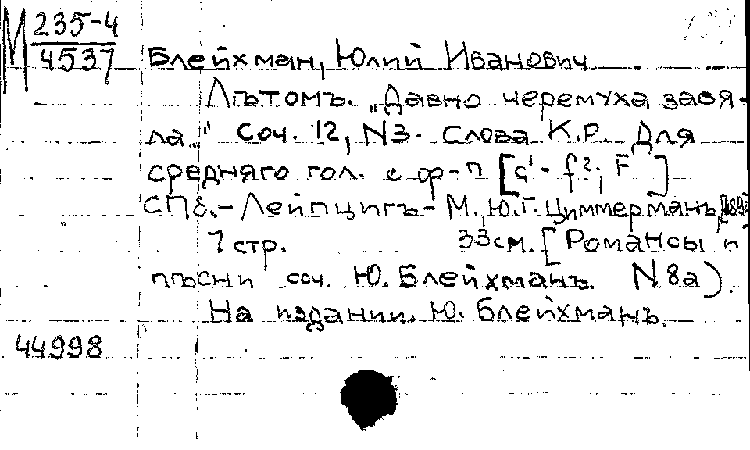 М 235-4
4537
Блейхман, Юлий Иванович
Лѣтомъ. „Давно черемуха завя-
ла.." Соч. 12, N3. Слова К.Р. Для
среднего гол. с ф-п [c¹ - f²; F]
СПб. - Лейпцигъ - М., Ю.Г. Циммерманъ,
7 стр. 33 см. [Романсы и
пѣсни соч. Ю. Блейхманъ. N 8а).
На издании. Ю. Блейхманъ.
44998